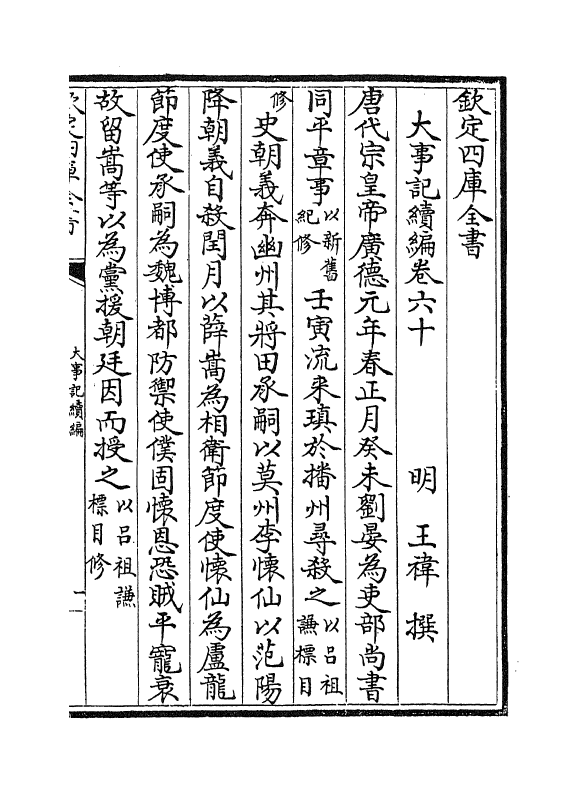 欽定四庫全書
大事記續編卷六十　　明　王禕　撰
唐代宗皇帝廣德元年春正月癸未劉晏為吏部尚書
同平章事以新舊紀修壬寅流來瑱於播州尋殺之以呂祖謙標目
修史朝義奔幽州其將田承嗣以莫州李懷仙以范陽
降朝義自殺閏月以薛嵩為相衛節度使懷仙為盧龍
節度使承嗣為魏博都防禦使僕固懷恩恐賊平寵衰
故留嵩等以為黨援朝廷因而授之以呂祖謙標目修
欽定四庫全書
大事記續編
一